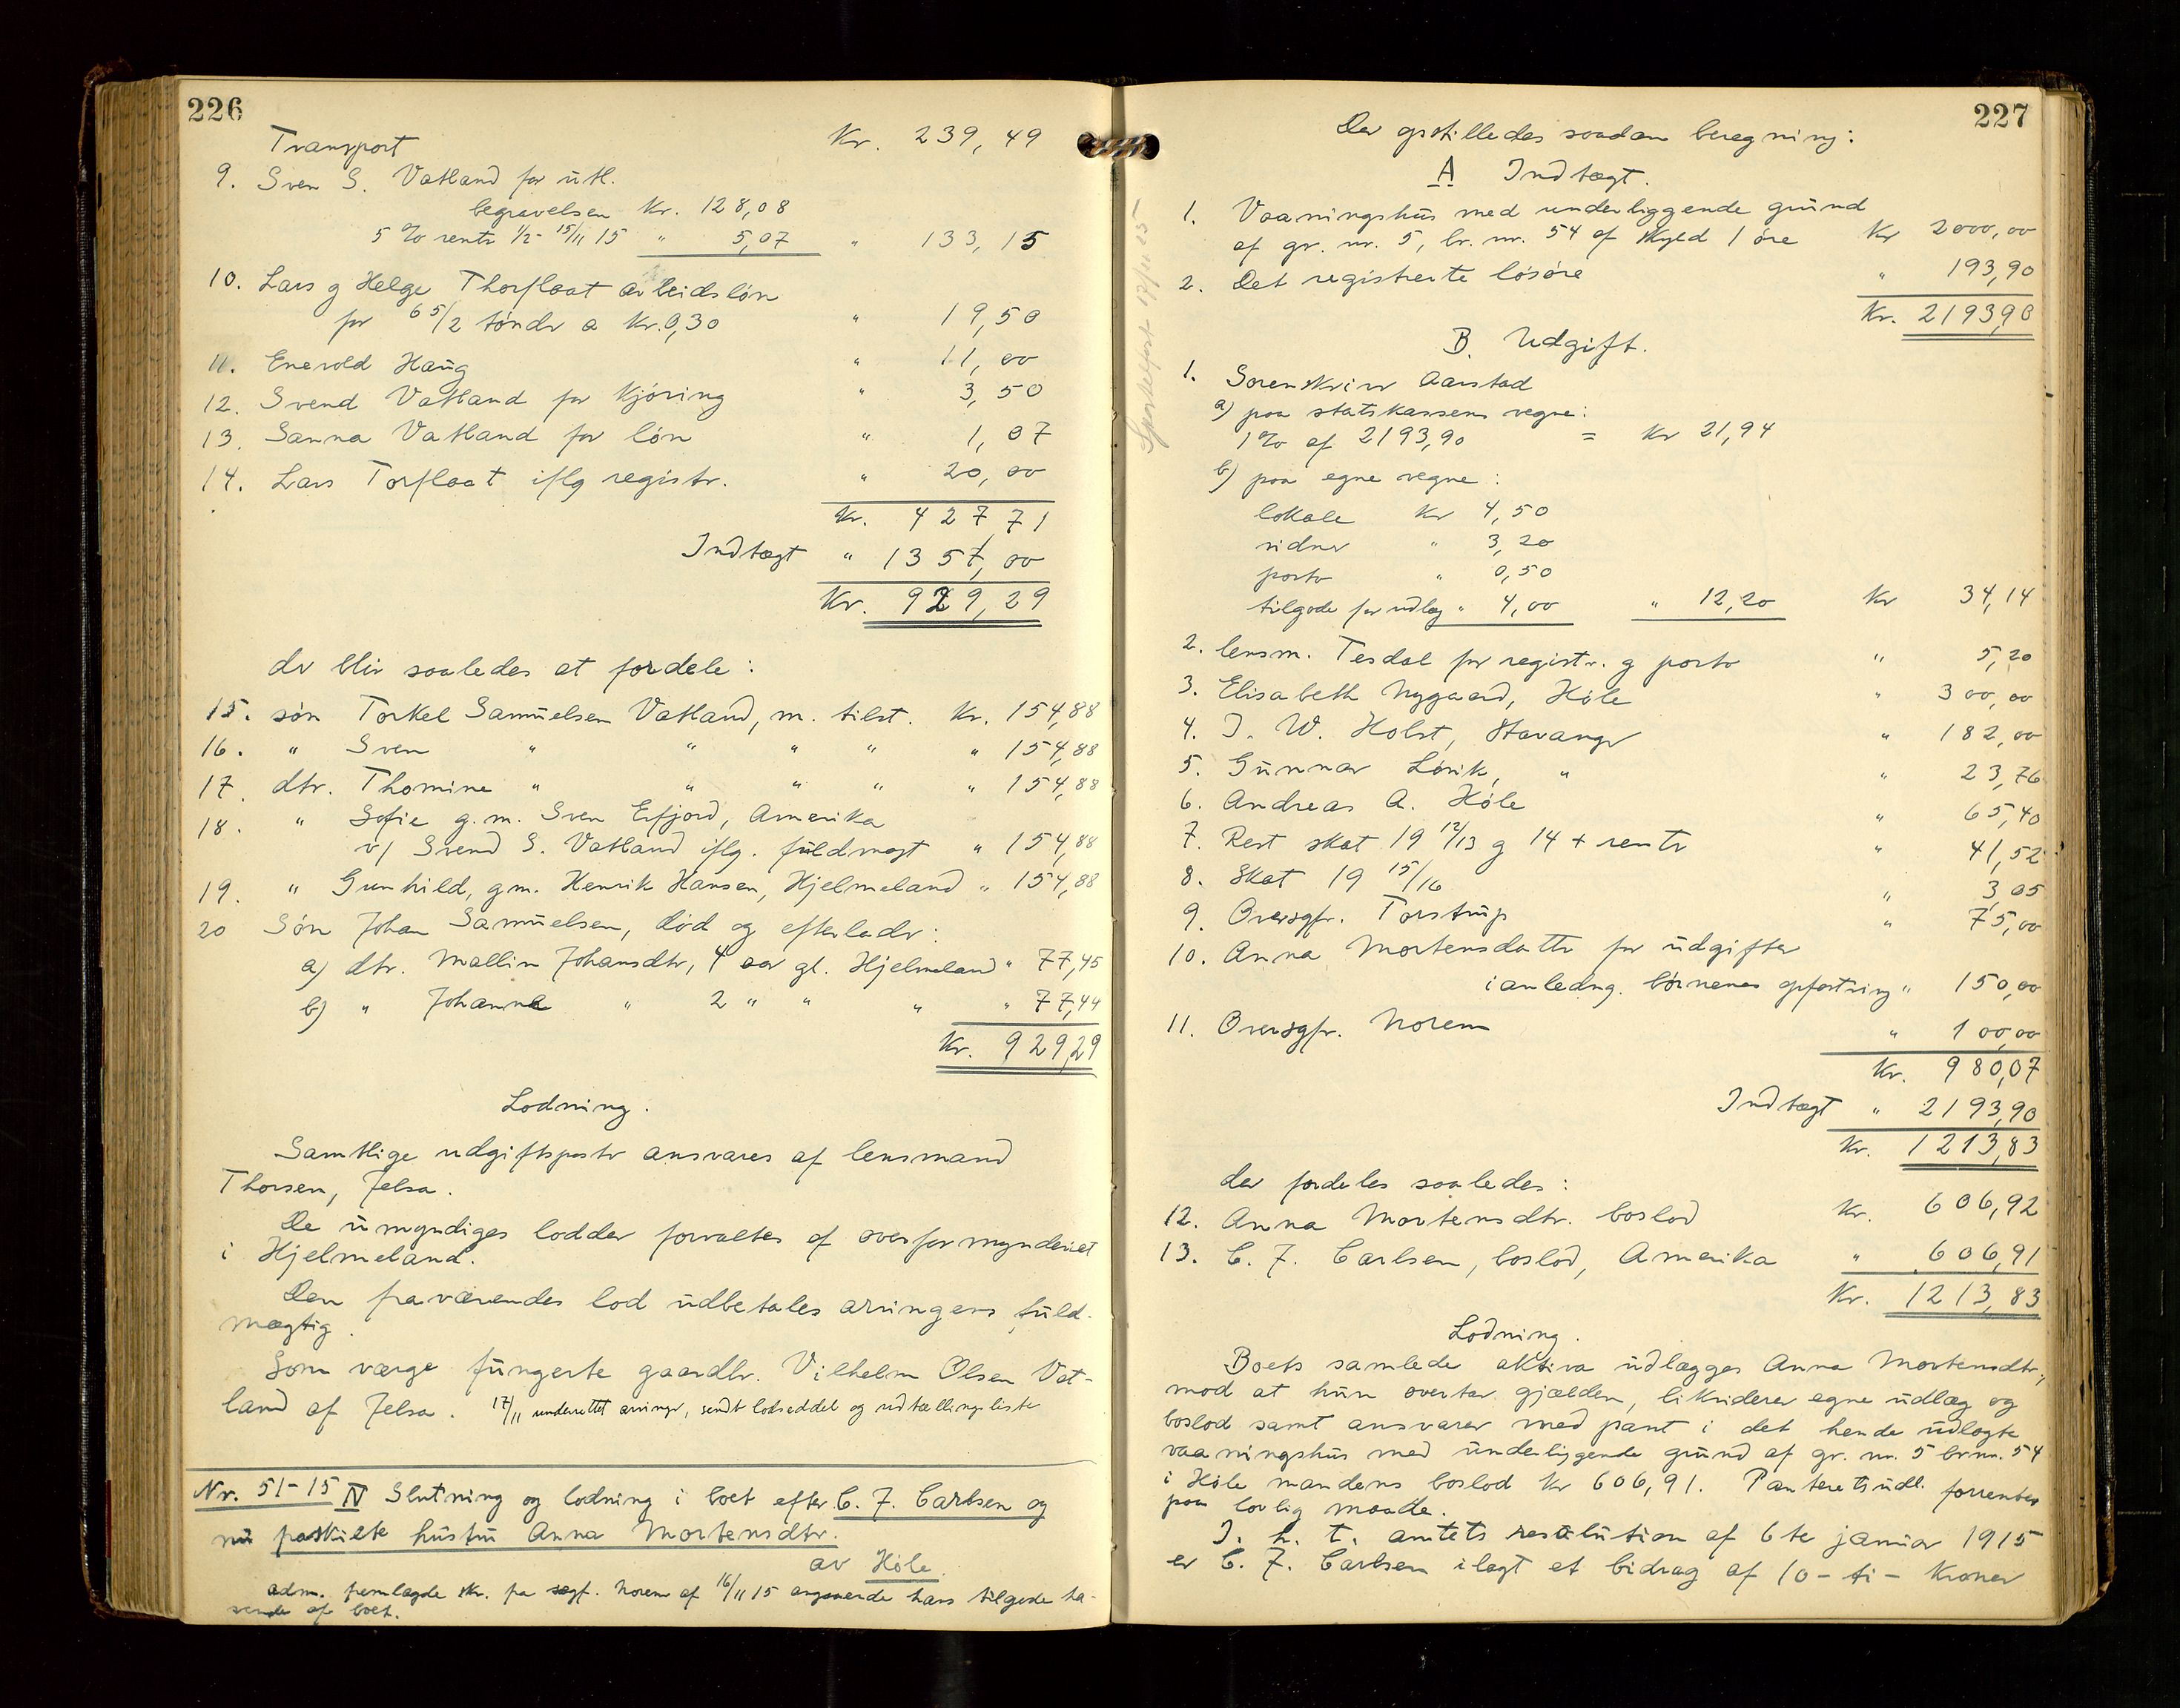 226
Transport Kr. 239,49
9. Sven S. Vatland for utl.
begravelsen Kr. 128,08
5 % rente 1/2 - 15/11 15 " 5,07 " 133,15
10. Lars g Helge Thorflaat arbeidsløn
for 65/2 tønder a Kr. 0,30 " 19,50
11. Enevold Haug " 11,00
12. Svend Vatland for kjøring " 3,50
13. Sanna Vatland for løn " 1,07
14. Lars Torflaat iflg registr. " 20,00
Kr. 427,71
Indtægt " 1357,00
Kr. 929,29
der blir saaledes at fordele:
15. søn Torkel Samuelsen Vatland, m. tilst. Kr. 154,88
16. " Sven " " " " " 154,88
17. dtr. Thomine " " " " " 154,88
18. " Sofie g.m. Sven Erfjord, Amerika
v/ Svend S. Vatland iflg. fuldmagt " 154,88
19. " Gunhild, g.m. Henrik Hansen, Hjelmeland " 154,88
20 Søn Johan Samuelsen, død og efterlader:
a) dtr. Mallin Johansdtr, 4 aar gl. Hjelmeland " 77,45
b) " Johanna " 2 " " " " 77,44
Kr. 929,29
Lodning.
Samtlige udgiftsposter ansvares af lensmand
Thorsen, Jelsa.
De umyndiges lodder forvaltes af overformynderiet
i Hjelmeland.
Den fraværendes lod udbetales arvingens fuld-
mægtig.
Som værge fungerte gaardbr. Vilhelm Olsen Vat-
land af Jelsa. 17/11 underrettet arvinger, sendt lodseddel og udtællingsliste
Nr. 51-15 IV Slutning og lodning i boet efter C. J. Carlsen og
nu fraskilte hustru Anna Mortensdtr.
av Høle.
adm. fremlagde skr. fra sagf. Norem af 16/11 15 angaaende hans tilgodeha-
vende af boet.
227
Der opstilledes saadan beregning:
A Indtægt.
1. Vaaningshus med underliggende grund
af gr. nr. 5, br. nr. 54 af skyld 1 øre Kr 2000,00
2. Det registrerte løsøre " 193,90
Kr. 2193,90
B. Udgift.
1. Sorenskriver Aarstad
a) paa statskassens vegne:
1% af 2193,90 = Kr 21,94
b) paa egne vegne:
lokale Kr 4,50
vidner " 3,20
porto " 0,50
tilgode for udlæg " 4,00 " 12,20 Kr 34,14
2. lensm. Tesdal for registr. g porto " 5,20
3. Elisabeth Nygaard, Høle " 300,00
4. J. W. Holst, Stavanger " 182,00
5. Gunnar Lørik, " " 23,76
6. Andreas A. Høle " 65,40
7. Rest skat 19 12/13 g 14 + renter " 41,52
8. Skat 19 15/16 " 3,05
9. Oversgfr. Torstrup " 75,00
10. Anna Mortensdatter for udgifter
i anledng. børnenes opfostring " 150,00
11. Oversgfr. Norem " 100,00
Kr. 980,07
Indtægt " 2193,90
Kr. 1213,83
der fordeles saaledes:
12. Anna Mortensdtr. boslod Kr. 606,92
13. C. J. Carlsen, boslod, Amerika " 606,91
Kr. 1213,83
Lodning.
Boets samlede aktiva udlægges Anna Mortensdtr.,
mod at hun overtar gjælden, likviderer egne udlæg og
boslod samt ansvarer med pant i det hende udlagte
vaaningshus med underliggende grund af gr. nr. 5 br.nr. 54
i Høle mandens boslod Kr 606,91. Panteretsudl. forrentes
paa lovlig maade.
I. h. t. amtets resolution af 6te januar 1915
er C. J. Carlsen ilagt et bidrag af 10 - ti - Kroner